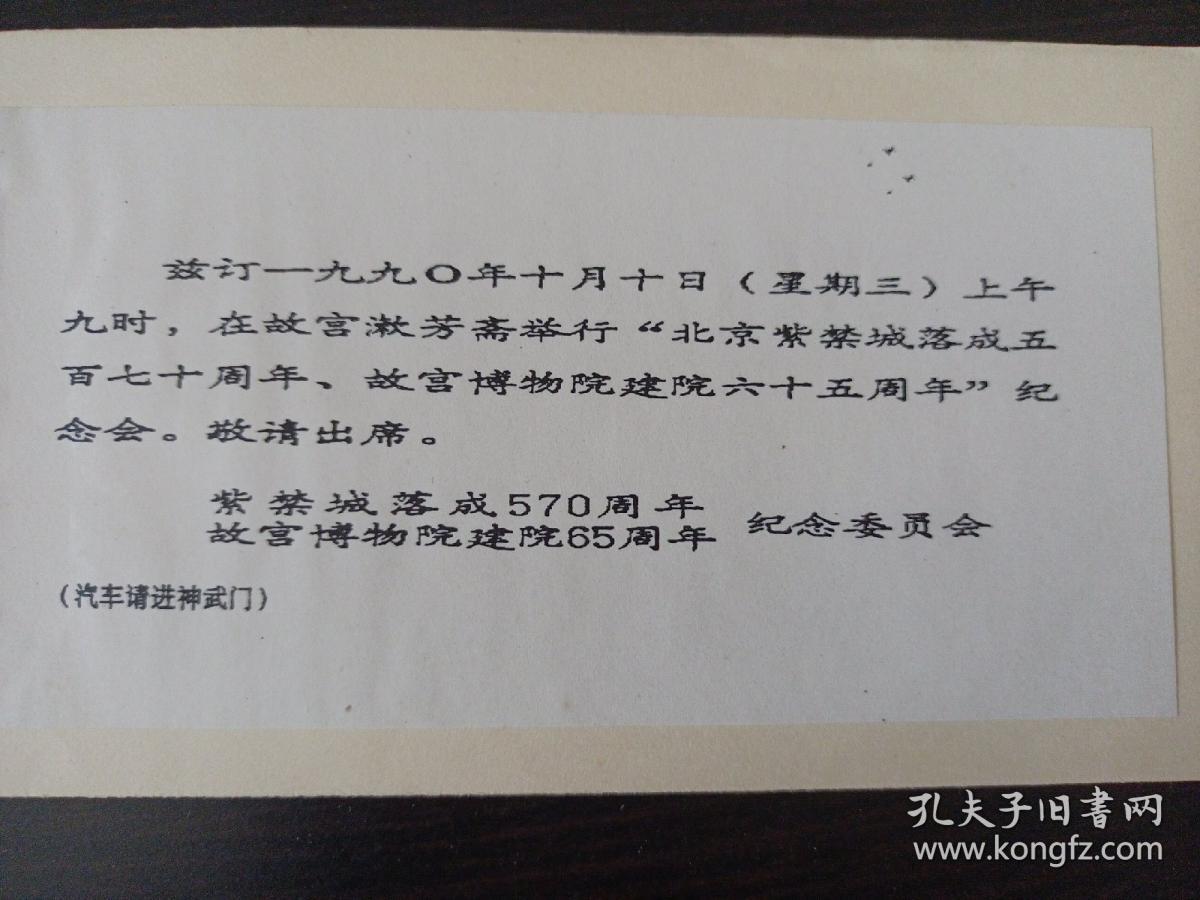 兹订一九九〇年十月十日（星期三）上午
九时，在故宫漱芳斋举行“北京紫禁城落成五
百七十周年、故宫博物院建院六十五周年”纪
念会。敬请出席。
紫禁城落成570周年
故宫博物院建院65周年 纪念委员会
（汽车请进神武门）
孔夫子旧書网
www.kongfz.com